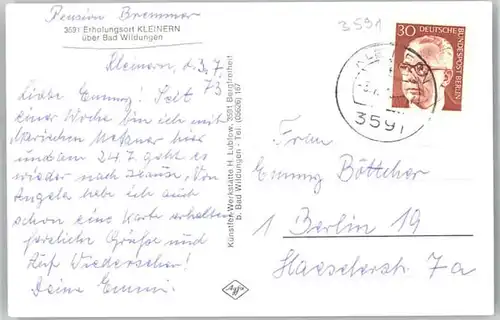 Pension Bremmer
3591 Erholungsort KLEINERN
über Bad Wildungen
Kleinern, d. 3. 7.
73
Liebe Emmy! Seit
einer Woche bin ich mit
Mariechen Meßner hier
und am 24.7. geht es
wieder nach Hause. Von
Angela habe ich auch
schon eine Karte erhalten
herzliche Grüße und
Auf Wiedersehen!
Deine Emmi.
Künstler-Werkstätte H. Lublow, 3591 Bergfreiheit
b. Bad Wildungen, Tel. (05626) 167
Agfa
3591
30
DEUTSCHE
BUNDESPOST BERLIN
3591
Frau
Emmy Böttcher
1 Berlin 19
Haeselerstr. 7a